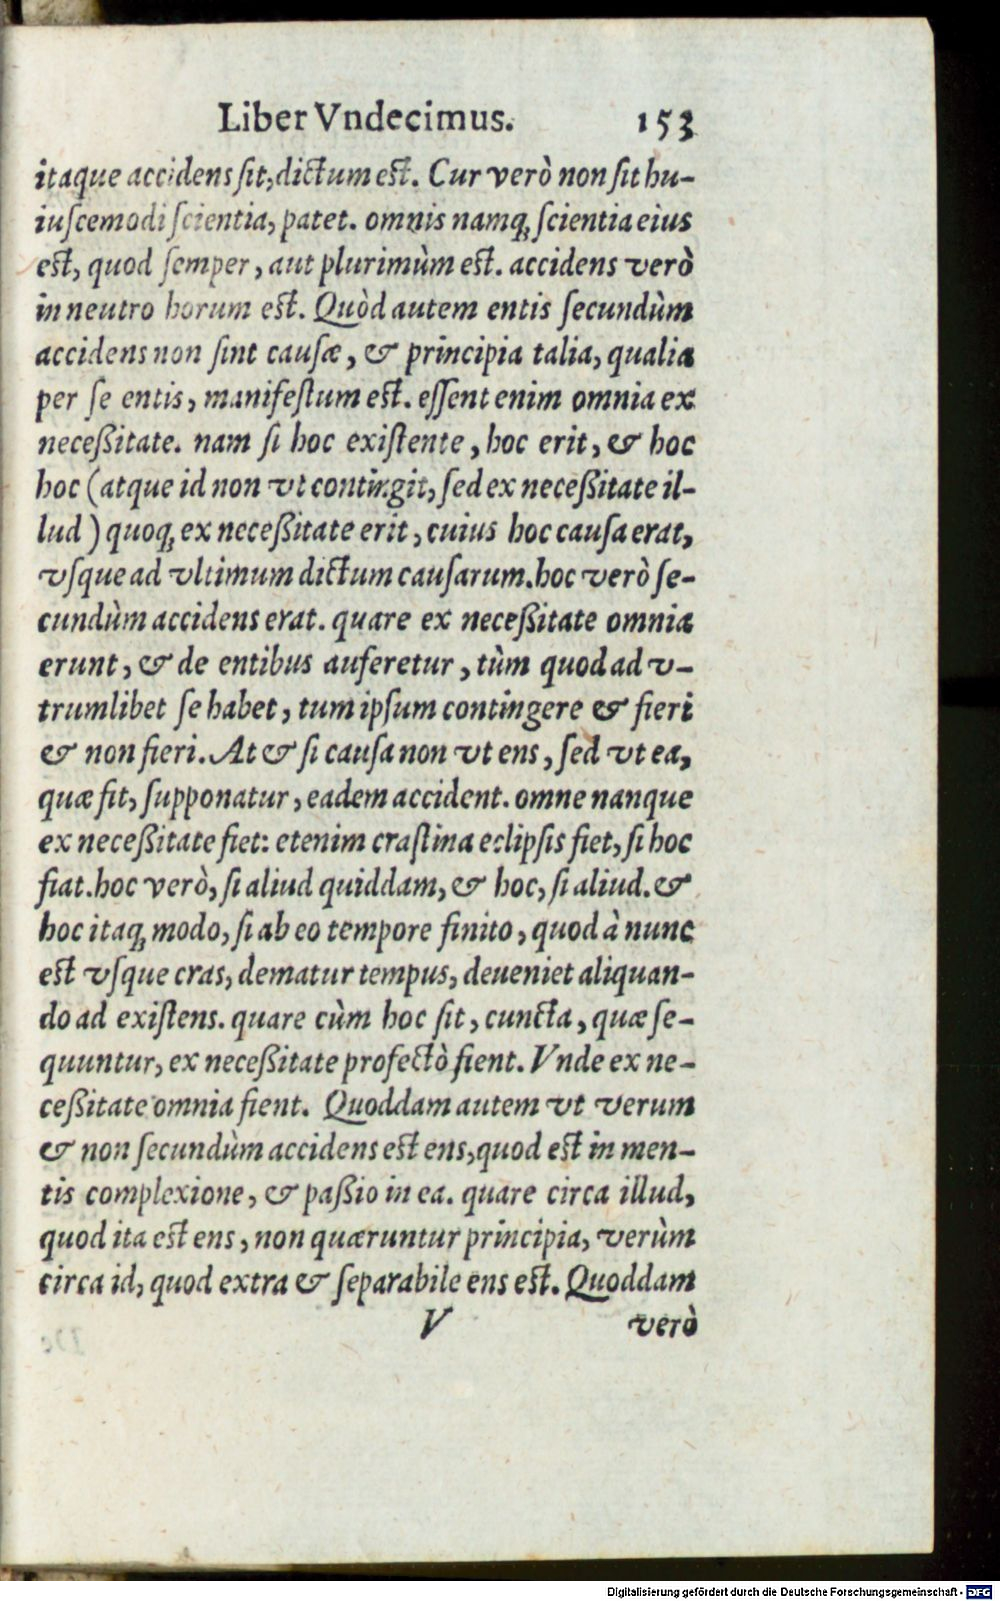 Liber Vndecimus. 153
itaque accidens ſit, dictum est. Cur verò non ſit hu-
iuſcemodi ſcientia, patet. omnis namq; ſcientia eius
est, quod ſemper, aut plurimùm est. accidens verò
in neutro horum est. Quòd autem entis ſecundùm
accidens non ſint cauſæ, & principia talia, qualia
per ſe entis, manifeſtum est. eſſent enim omnia ex
neceßitate. nam ſi hoc exiſtente, hoc erit, & hoc
hoc (atque id non vt contingit, ſed ex neceßitate il-
lud) quoq; ex neceßitate erit, cuius hoc cauſa erat,
vſque ad vltimum dictum cauſarum. hoc verò ſe-
cundùm accidens erat. quare ex neceßitate omnia
erunt, & de entibus auferetur, tùm quod ad v-
trumlibet ſe habet, tum ipſum contingere & fieri
& non fieri. At & ſi cauſa non vt ens, ſed vt ea,
quæ fit, ſupponatur, eadem accident. omne nanque
ex neceßitate fiet: etenim craſtina eclipſis fiet, ſi hoc
fiat. hoc verò, ſi aliud quiddam, & hoc, ſi aliud. &
hoc itaq; modo, ſi ab eo tempore finito, quod à nunc
est vſque cras, dematur tempus, deueniet aliquan-
do ad exiſtens. quare cùm hoc ſit, cuncta, quæ ſe-
quuntur, ex neceßitate profectò fient. Vnde ex ne-
ceßitate omnia fient. Quoddam autem vt verum
& non ſecundùm accidens est ens, quod est in men-
tis complexione, & paßio in ea. quare circa illud,
quod ita est ens, non quæruntur principia, verùm
circa id, quod extra & ſeparabile ens est. Quoddam
V verò
Digitalisierung gefördert durch die Deutsche Forschungsgemeinschaft - DFG